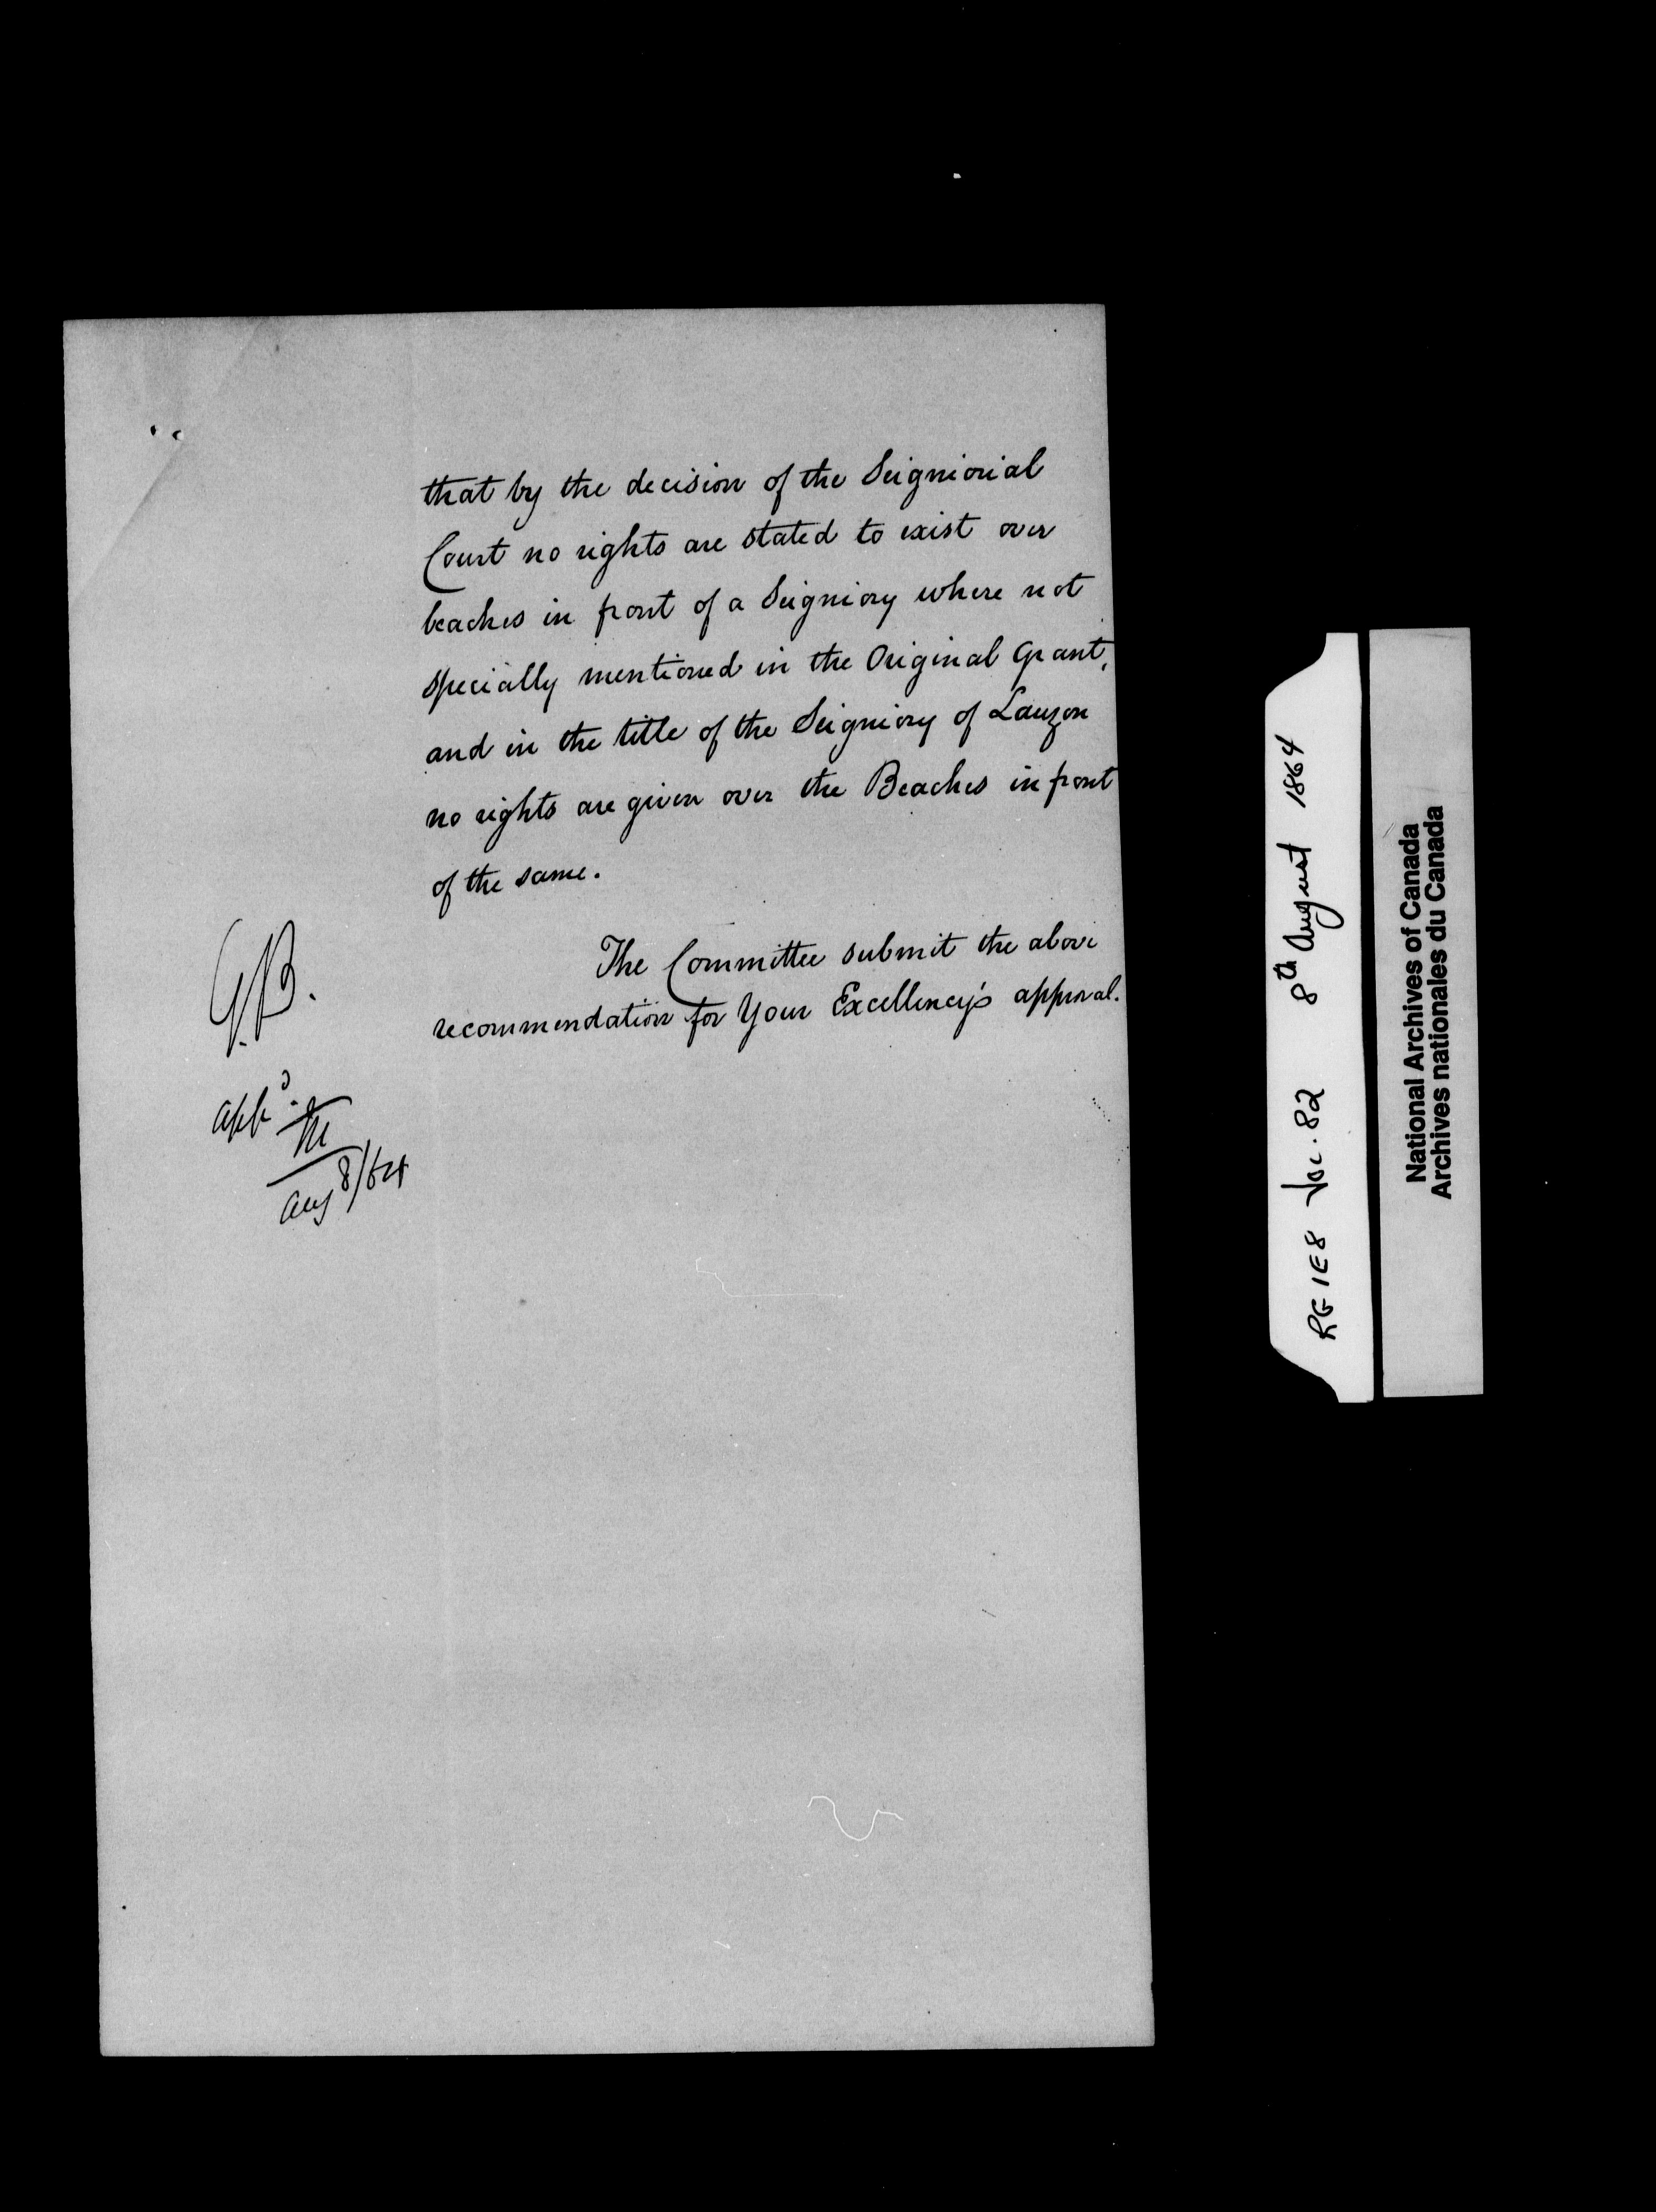 that by the decision of the Seigniorial
Court no rights are stated to exist over
beaches in front of a Seigniory where not
specially mentioned in the Original Grant,
and in the title of the Seigniory of Lauzon
no rights are given over the Beaches in front
of the same.
The Committee submit the above
recommendation for Your Excellency's approval.
G.B.
appd.
M
Aug 8/64
RG 1E8 Vol. 82 8th August 1864
National Archives of Canada
Archives nationales du Canada